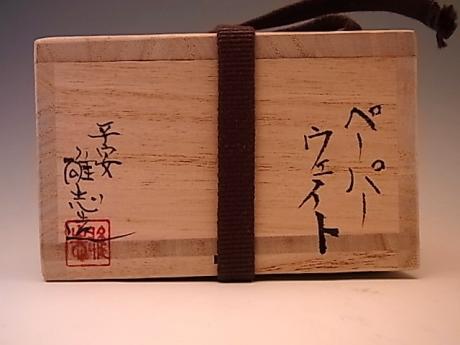 ペーパー
ウェイト
平安
雅志造